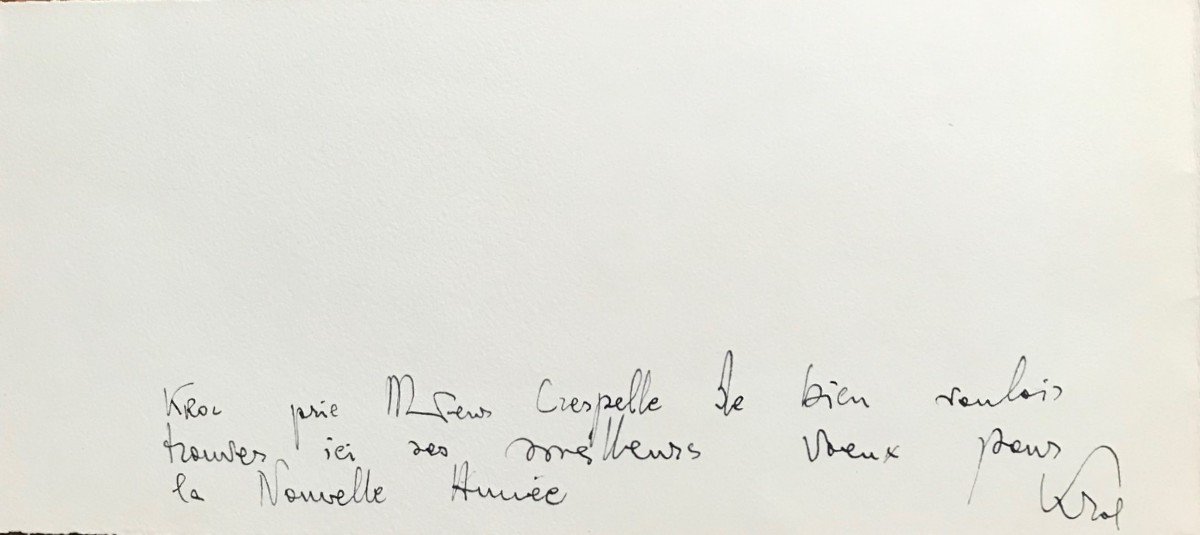 Krol prie Monsieur Crespelle de bien vouloir
trouver ici ses meilleurs vœux pour
la Nouvelle Année
Krol